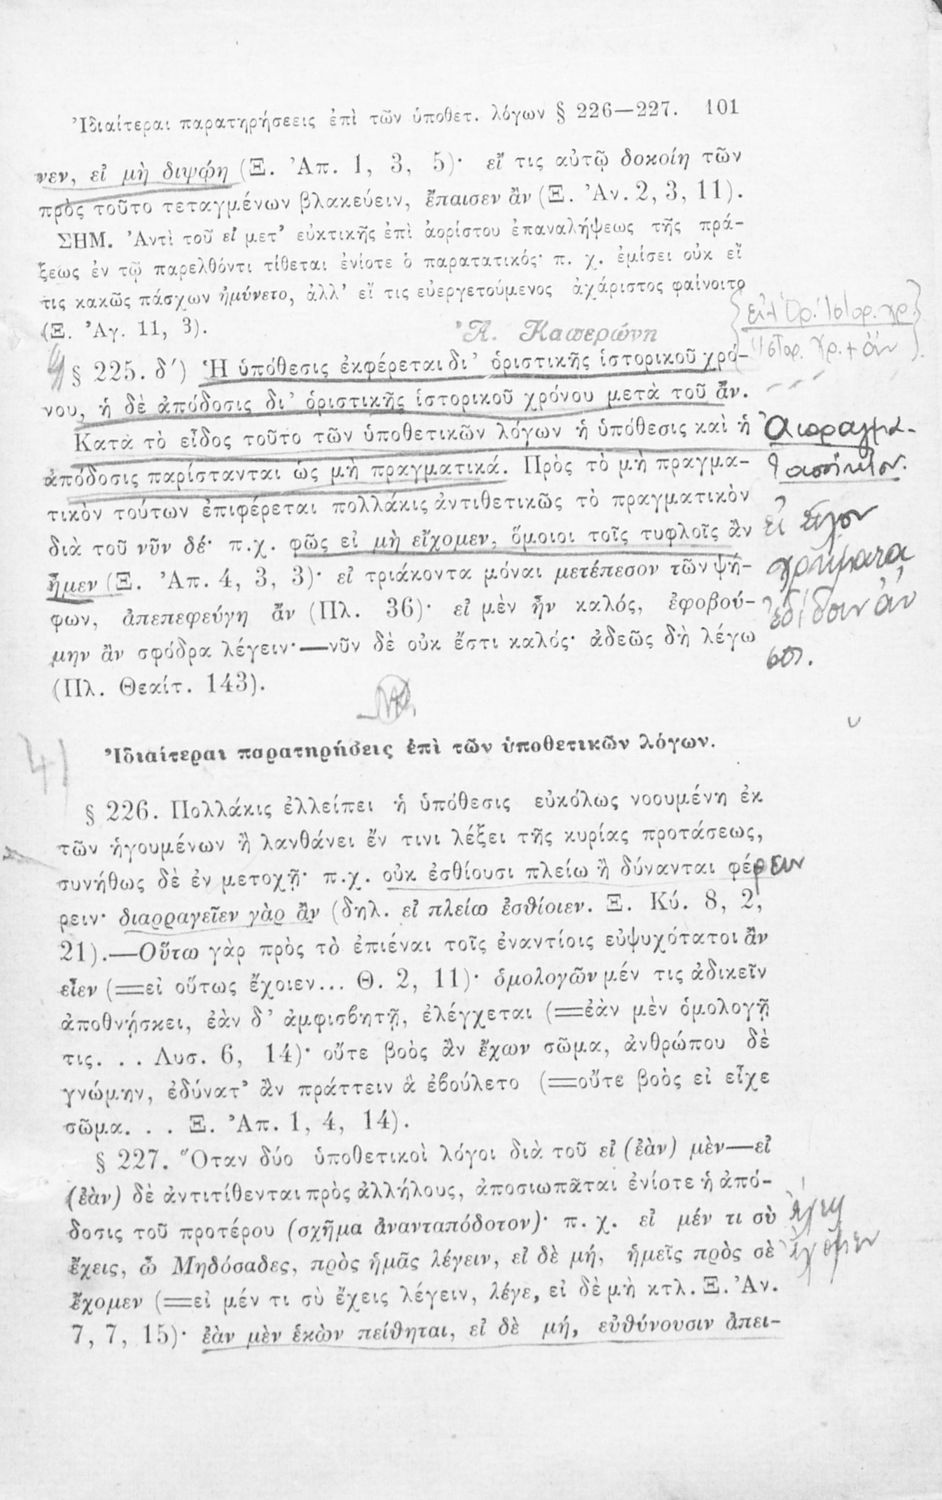 Ἰδιαίτεραι παρατηρήσεεις ἐπὶ τῶν ὑποθετ. λόγων § 226—227. 101
νεν, εἰ μὴ διψῴη (Ξ. Ἀπ. 1, 3, 5)· εἴ τις αὐτῷ δοκοίη τῶν
πρὸς τοῦτο τεταγμένων βλακεύειν, ἔπαισεν ἂν (Ξ. Ἀν. 2, 3, 11).
ΣΗΜ. Ἀντὶ τοῦ εἰ μετ' εὐκτικῆς ἐπὶ ἀορίστου ἐπαναλήψεως τῆς πρά-
ξεως ἐν τῷ παρελθόντι τίθεται ἐνίοτε ὁ παρατατικός· π. χ. ἐμίσει οὐκ εἴ
τις κακῶς πάσχων ἠμύνετο, ἀλλ' εἴ τις εὐεργετούμενος ἀχάριστος φαίνοιτο
(Ξ. Ἀγ. 11, 3).
Ἀ. Κασερώνη
{εἰ + Ὁρ. Ἱστορ. χρ.
Ἱστορ. χρ. + ἄν}
§ 225. δ΄) Ἡ ὑπόθεσις ἐκφέρεται δι' ὁριστικῆς ἱστορικοῦ χρό-
νου, ἡ δὲ ἀπόδοσις δι' ὁριστικῆς ἱστορικοῦ χρόνου μετὰ τοῦ ἄν.
Κατὰ τὸ εἶδος τοῦτο τῶν ὑποθετικῶν λόγων ἡ ὑπόθεσις καὶ ἡ
ἀπόδοσις παρίστανται ὡς μὴ πραγματικά. Πρὸς τὸ μὴ πραγμα-
τικὸν τούτων ἐπιφέρεται πολλάκις ἀντιθετικῶς τὸ πραγματικὸν
διὰ τοῦ νῦν δέ· π.χ. φῶς εἰ μὴ εἴχομεν, ὅμοιοι τοῖς τυφλοῖς ἂν
ἦμεν (Ξ. Ἀπ. 4, 3, 3)· εἰ τριάκοντα μόναι μετέπεσον τῶν ψή-
φων, ἀπεπεφεύγη ἄν (Πλ. 36)· εἰ μὲν ἦν καλός, ἐφοβού-
μην ἂν σφόδρα λέγειν·—νῦν δὲ οὐκ ἔστι καλός· ἀδεῶς δὴ λέγω
(Πλ. Θεαίτ. 143).
Ἀπραγμα-
τοποίητον.
εἰ εἶχον
χρήματα
ἐδίδουν ἄν
σοι.
Ἰδιαίτεραι παρατηρήσεις ἐπὶ τῶν ὑποθετικῶν λόγων.
§ 226. Πολλάκις ἐλλείπει ἡ ὑπόθεσις εὐκόλως νοουμένη ἐκ
τῶν ἡγουμένων ἢ λανθάνει ἔν τινι λέξει τῆς κυρίας προτάσεως,
συνήθως δὲ ἐν μετοχῇ· π.χ. οὐκ ἐσθίουσι πλείω ἢ δύνανται φέρειν
ρειν· διαρραγεῖεν γὰρ ἂν (δηλ. εἰ πλείω ἐσθίοιεν. Ξ. Κύ. 8, 2,
21).—Οὕτω γὰρ πρὸς τὸ ἐπιέναι τοῖς ἐναντίοις εὐψυχότατοι ἂν
εἶεν (=εἰ οὕτως ἔχοιεν... Θ. 2, 11)· ὁμολογῶν μέν τις ἀδικεῖν
ἀποθνῄσκει, ἐὰν δ' ἀμφισβητῇ, ἐλέγχεται (=ἐὰν μὲν ὁμολογῇ
τις. . . Λυσ. 6, 14)· οὔτε βοὸς ἂν ἔχων σῶμα, ἀνθρώπου δὲ
γνώμην, ἐδύνατ' ἂν πράττειν ἃ ἐβούλετο (=οὔτε βοὸς εἰ εἶχε
σῶμα. . . Ξ. Ἀπ. 1, 4, 14).
§ 227. Ὅταν δύο ὑποθετικοὶ λόγοι διὰ τοῦ εἰ (ἐὰν) μὲν—εἰ
(ἐὰν) δὲ ἀντιτίθενται πρὸς ἀλλήλους, ἀποσιωπᾶται ἐνίοτε ἡ ἀπό-
δοσις τοῦ προτέρου (σχῆμα ἀνανταπόδοτον)· π. χ. εἰ μέν τι σὺ
ἔχεις, ὦ Μηδόσαδες, πρὸς ἡμᾶς λέγειν, εἰ δὲ μή, ἡμεῖς πρὸς σὲ
ἔχομεν (=εἰ μέν τι σὺ ἔχεις λέγειν, λέγε, εἰ δὲ μὴ κτλ. Ξ. Ἀν.
7, 7, 15)· ἐὰν μὲν ἑκὼν πείθηται, εἰ δὲ μή, εὐθύνουσιν ἀπει-